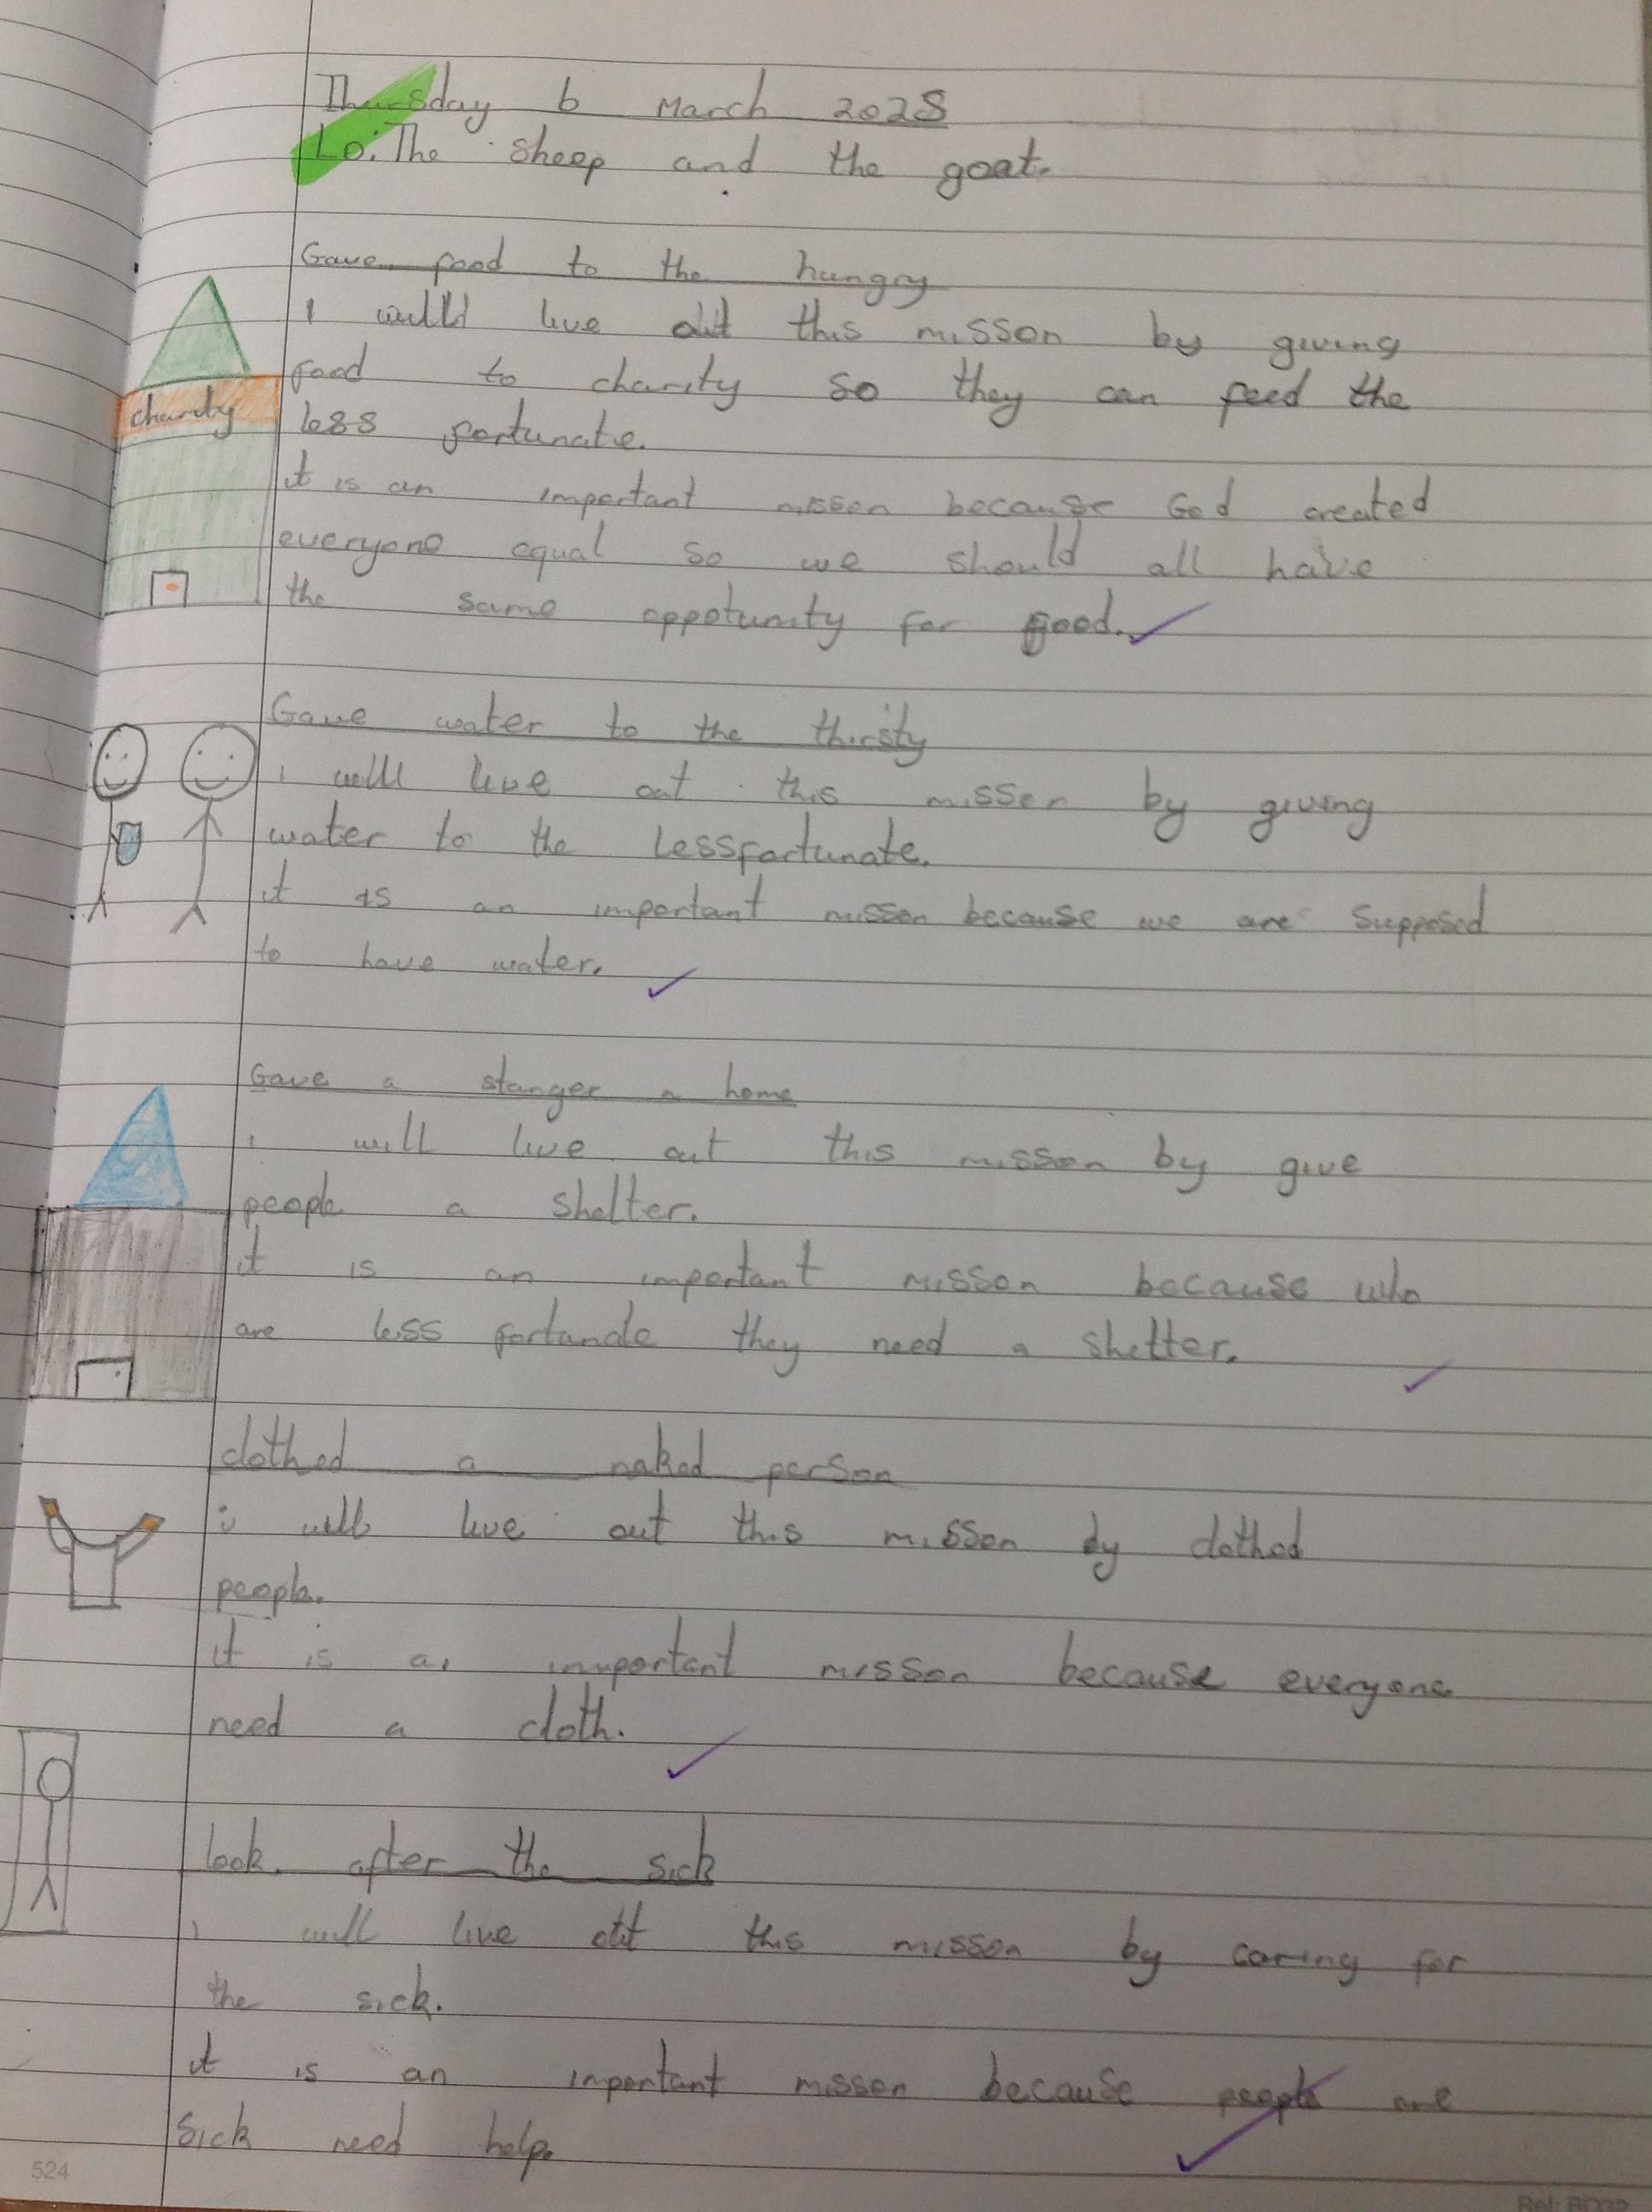 Thursday 6 March 2025
Lo: The sheep and the goat.
Gave food to the hungry
I will live out this misson by giving
food to charity so they can feed the
charity
less fortunate.
it is an important misson because God created
everyone equal so we should all have
the same oppotunity for food.
Gave water to the thirsty
i will live out this misson by giving
water to the lessfortunate.
it is an important misson because we are supposed
to have water.
Gave a stanger a home
i will live out this misson by give
people a shelter.
it is an important misson because who
are less fortanate they need a shelter.
clothed a naked person
i will live out this misson by clothed
people.
it is a important misson because everyone
need a cloth.
look after the sick
i will live out this misson by caring for
the sick.
it is an inportant misson because people are
sick need help.
524